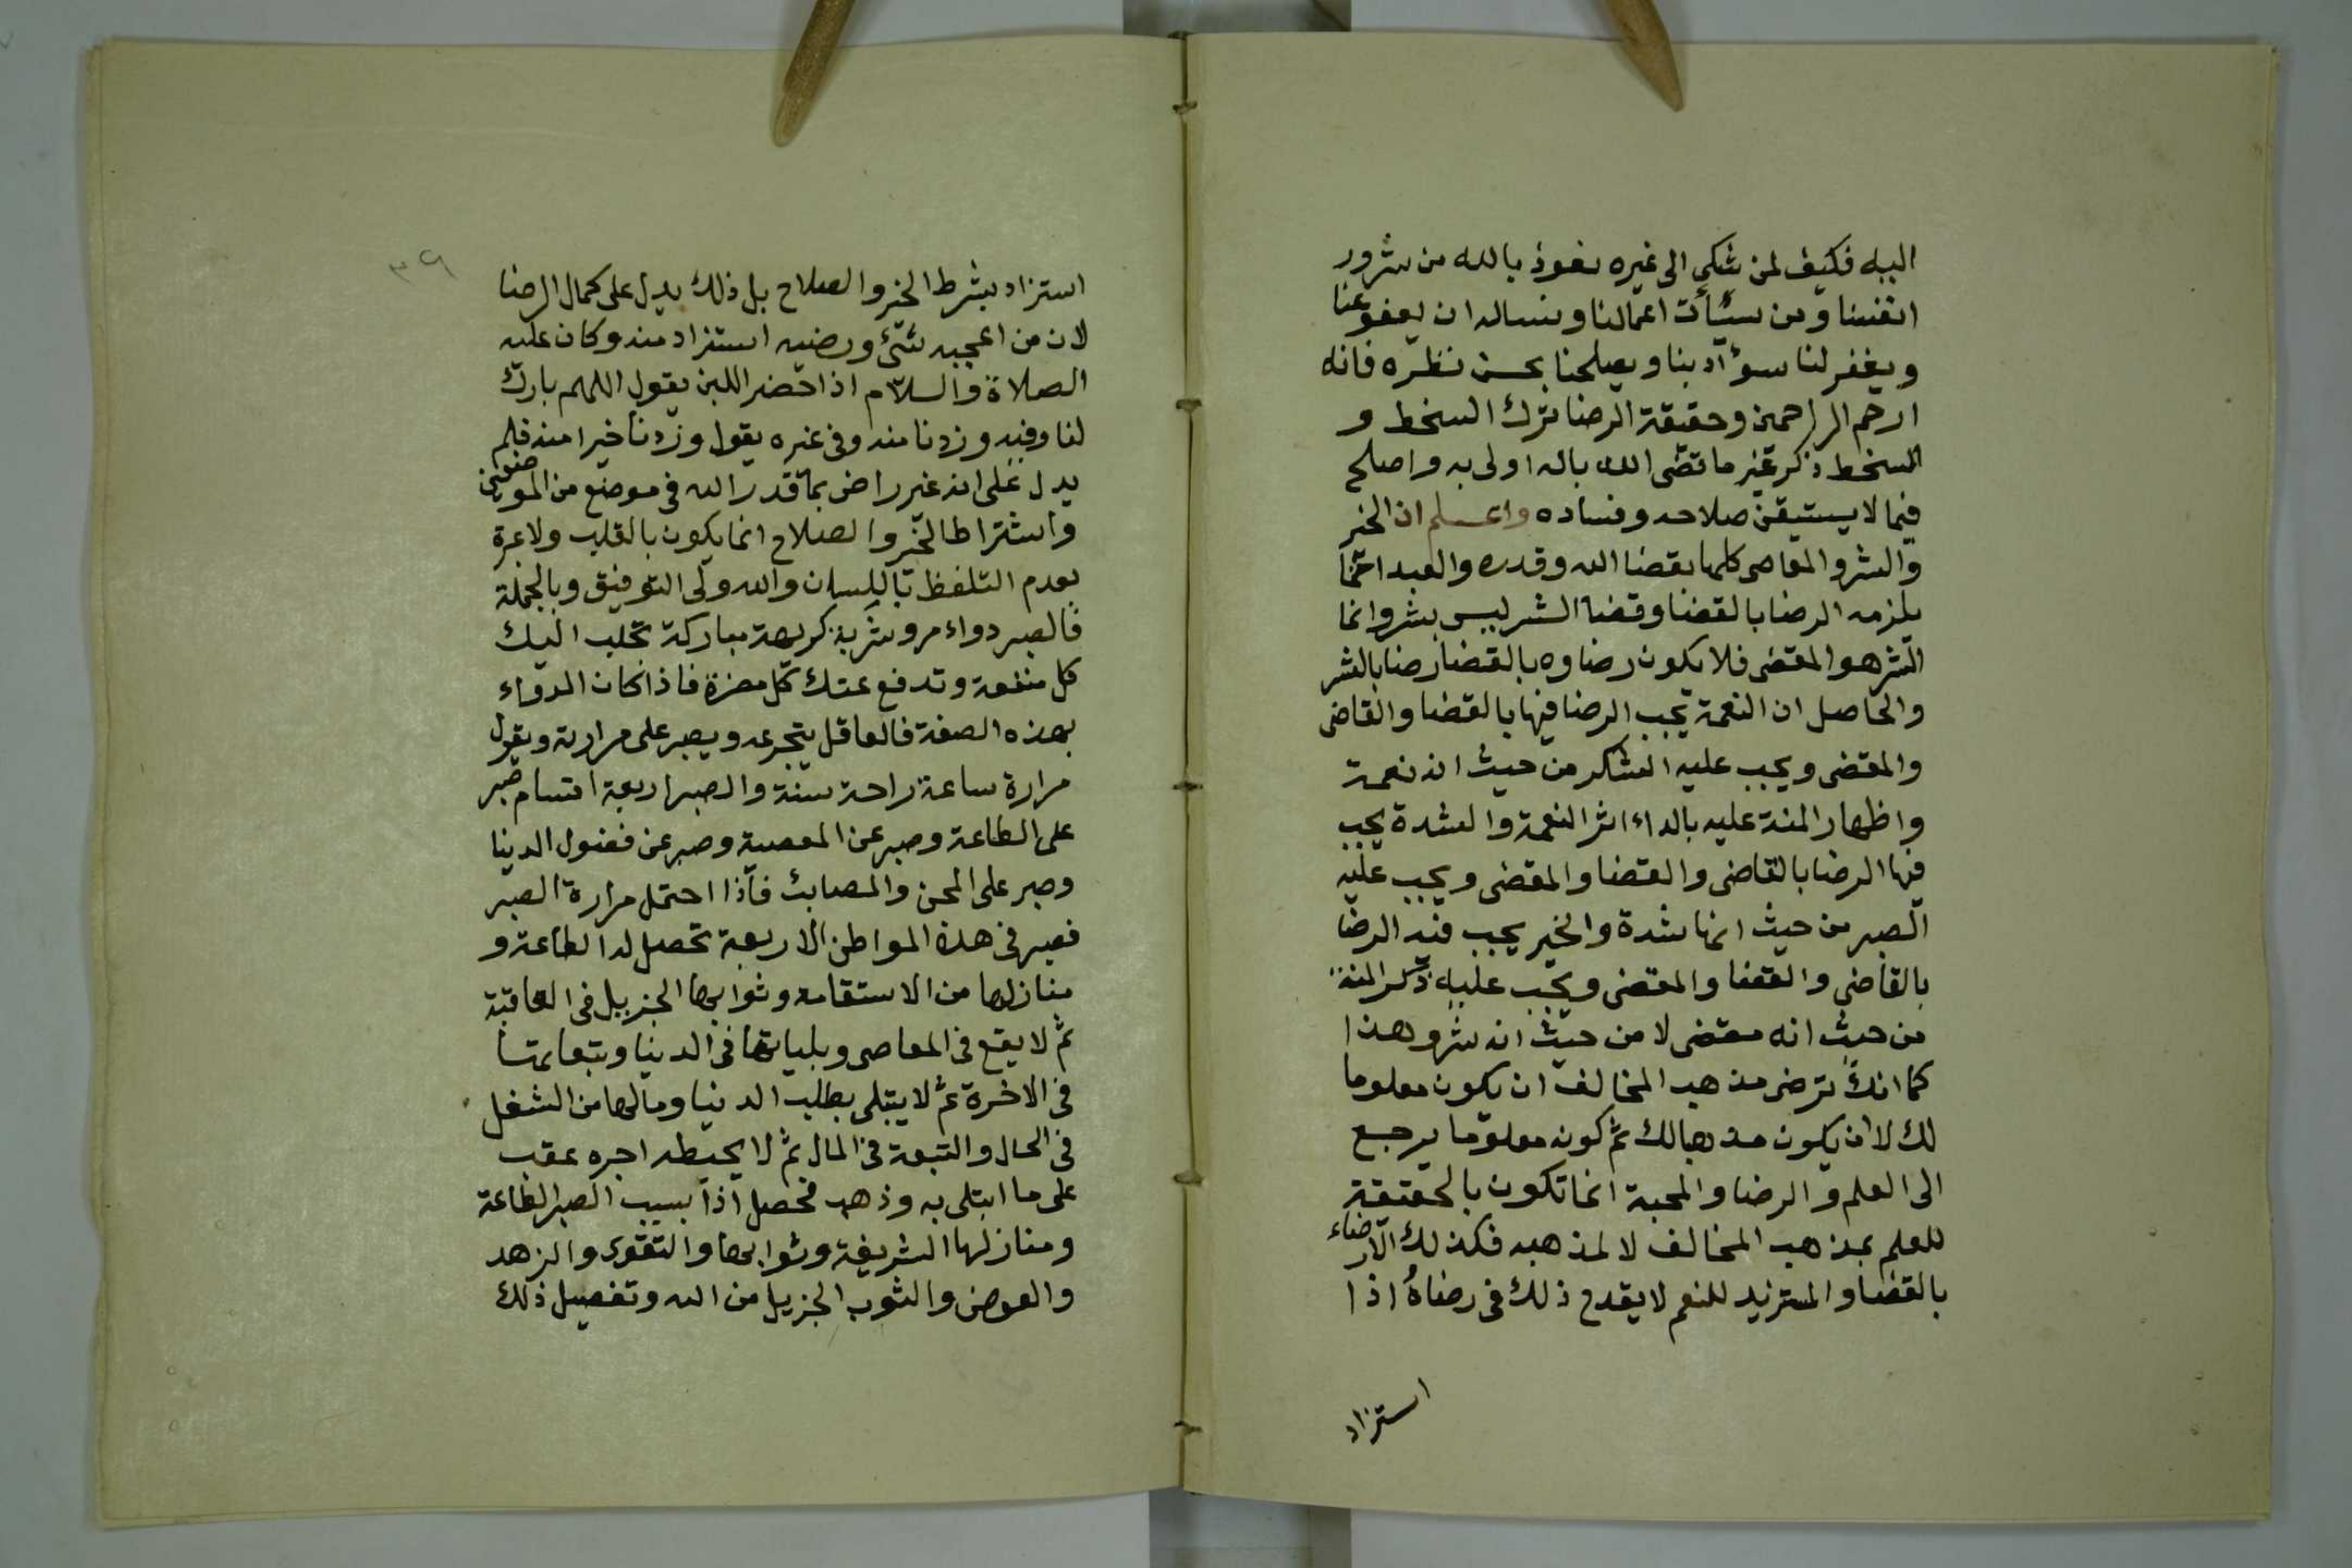 اليه فكيف لمن شكى الى غيره نعوذ بالله من شرور
انفسنا ومن سيأت اعمالنا ونساله ان يعفو عنا
ويغفر لنا سؤ آدبنا ويصلحنا بحسن نظره فانه
ارحم الراحمين وحقيقة الرضا ترك السخط و
السخط ذكر غير ما قضى الله باله اولى به واصلح
فيما لا يستيقن صلاحه وفساده واعلم ان الخير
والشر والمعاصى كلها بقضا الله وقدره والعبد انما
يلزمه الرضا بالقضا وقضا الشر ليس بشر وانما
الشر هو المقضى فلا يكون رضاوه بالقضا رضا بالشر
والحاصل ان النعمة يجب الرضا فيها بالقضا والقاضى
والمقضى ويجب عليه الشكر من حيث انه نعمة
واظهار المنة عليه بالداء اثر النعمة والشدة يجب
فيها الرضا بالقاضى والقضا والمقضى ويجب عليه
الصبر من حيث انها شدة والخير يجب فيه الرضا
بالقاضى والقضا والمقضى ويجب عليه ذكر المنة
من حيث انه مقضى لا من حيث انه شر وهذا
كما انك ترضى مذهب المخالف ان يكون معلوما
لك لا ان يكون مذهبا لك ثم كونه معلوما يرجع
الى العلم والرضا والمحبة انما تكون بالحقيقة
للعلم بمذهب المخالف لا لمذهبه فكذلك الارضاء
بالقضا والمستزيد للنعم لا يقدح ذلك فى رضاهُ اذا
استزاد
٣٩
استزاد بشرط الخير والصلاح بل ذلك يدل على كمال الرضا
لان من اعجبه شئ ورضيه استزاد منه وكان عليه
الصلاة والسلام اذا حضر اللبن يقول اللهم بارك
لنا وفيه وزدنا منه وفى غيره يقول وزدنا خيرا منه فلم
يدل على انه غير راض بما قدر الله فى موضع من الموضعين
واشتراط الخير والصلاح انما يكون بالقلب ولا عبرة
بعدم التلفظ باللسان والله ولى التوفيق وبالجملة
فالصبر دواء مر وشربة كريهة مباركة تجلب اليك
كل منفعة وتدفع عنك كل مضرة فاذا كان الدواء
بهذه الصفة فالعاقل يتجرعه ويصبر على مرارته ويقول
مرارة ساعة راحة سنة والصبر اربعة اقسام صبر
على الطاعة وصبر عن المعصية وصبر عن فضول الدينا
وصبر على المحن والمصايب فاذا احتمل مرارة الصبر
فصبر فى هذه المواطن الاربعة تحصل له الطاعة و
منازلها من الاستقامة وثوابها الجزيل فى العاقبة
ثم لا يقع فى المعاصى وبلياتها فى الدينا وتبعايتها
فى الاخرة ثم لا يبتلى بطلب الدنيا ومالها من الشغل
فى الحال والتبعة فى المال ثم لا يحبطه اجره عقب
على ما ابتلى به وذهب فحصل اذا بسبب الصبر الطاعة
ومنازلها الشريفة وثوابها والتقوى والزهد
والعوض والثوب الجزيل من الله وتفصيل ذلك